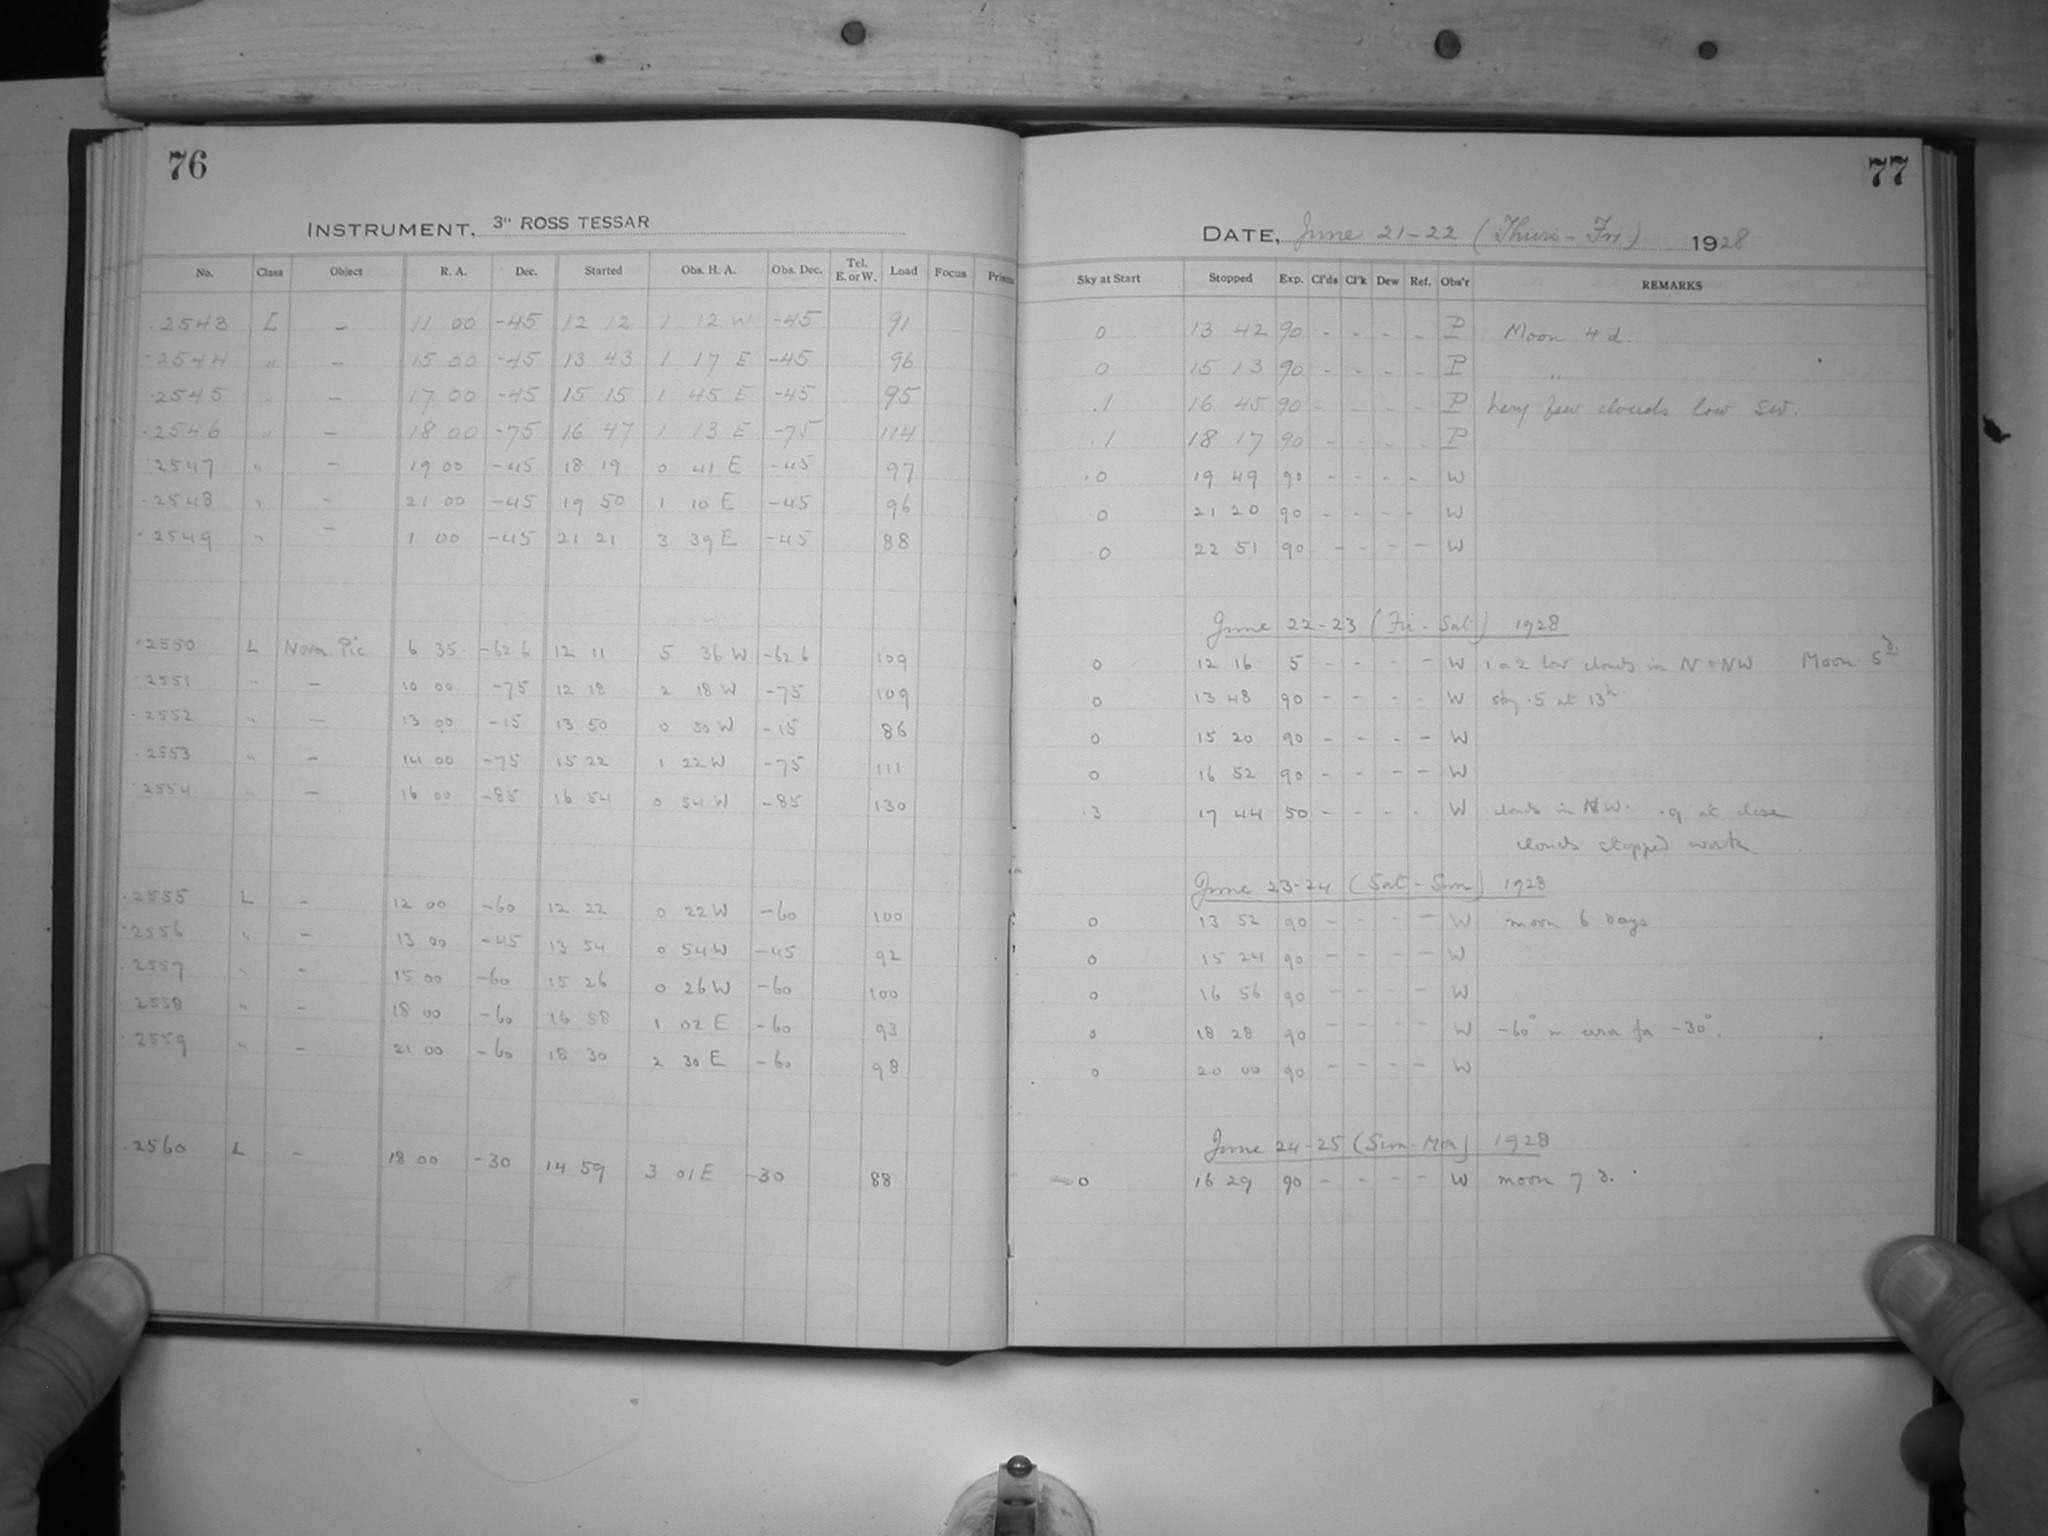 76
INSTRUMENT, 3" ROSS TESSAR
No. Class Object R. A. Dec. Started Obs. H. A. Obs. Dec. Tel. E. or W. Load Focus Prisms
2543 L – 11 00 -45 12 12 1 12 W -45 91
2544 " – 15 00 -45 13 43 1 17 E -45 96
2545 " – 17 00 -45 15 15 1 45 E -45 95
2546 " – 18 00 -75 16 47 1 13 E -75 114
2547 " – 19 00 -45 18 19 0 41 E -45 97
2548 " – 21 00 -45 19 50 1 10 E -45 96
2549 " – 1 00 -45 21 21 3 39 E -45 88
2550 L Nova Pic. 6 35 -62 6 12 11 5 36 W -62 6 109
2551 " – 10 00 -75 12 18 2 18 W -75 109
2552 " – 13 00 -15 13 50 0 50 W -15 86
2553 " – 14 00 -75 15 22 1 22 W -75 111
2554 " – 16 00 -85 16 54 0 54 W -85 130
2555 L – 12 00 -60 12 22 0 22 W -60 100
2556 " – 13 00 -45 13 54 0 54 W -45 92
2557 " – 15 00 -60 15 26 0 26 W -60 100
2558 " – 18 00 -60 16 58 1 02 E -60 93
2559 " – 21 00 -60 18 30 2 30 E -60 98
2560 L – 18 00 -30 14 59 3 01 E -30 88
77
DATE, June 21-22 (Thurs-Fri) 1928
Sky at Start Stopped Exp. Cl'ds Cl'k Dew Ref. Obs'r REMARKS
0 13 42 90 - - - - P Moon 4 d.
0 15 13 90 - - - - P "
.1 16 45 90 - - - - P Very few clouds low SW.
.1 18 17 90 - - - - P
.0 19 49 90 - - - - W
.0 21 20 90 - - - - W
.0 22 51 90 - - - - W
June 22-23 (Fri-Sat) 1928
0 12 16 5 - - - - W 1 or 2 low clouds in N & NW Moon 5d.
0 13 48 90 - - - - W sky .5 at 13h
0 15 20 90 - - - - W
0 16 52 90 - - - - W
.3 17 44 50 - - - - W clouds in NW. .9 at close
clouds stopped work
June 23-24 (Sat-Sun) 1928
0 13 52 90 - - - - W moon 6 days
0 15 24 90 - - - - W
0 16 56 90 - - - - W
0 18 28 90 - - - - W -60° in error for -30°.
0 20 00 90 - - - - W
June 24-25 (Sun-Mon) 1928
0 16 29 90 - - - - W moon 7 d.